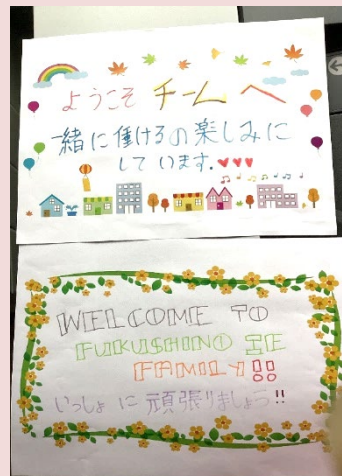 ようこそ チームへ
一緒に働けるの楽しみに
しています.
WELCOME TO
FUKUSHINO IE
FAMILY!!
いっしょに頑張りましょう!!